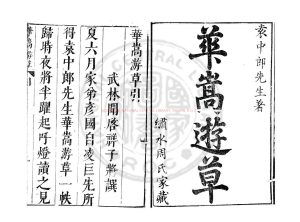 袁中郎先生著
華嵩遊草
繡水周氏家藏
華嵩游草引
武林聞啓祥子將譔
夏六月家弟彥國自凌巨先所
得袁中郎先生華嵩游草一帙
歸時夜將半躍起呼燈讀之見